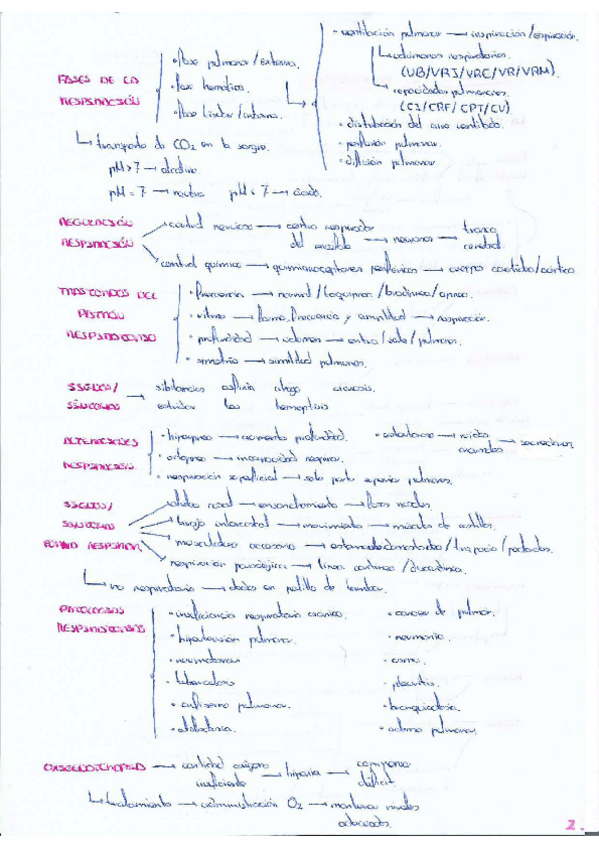 FASES DE LA RESPIRACIÓN
• fase pulmonar / externa.
• fase hemática.
• fase tisular / interna.
• ventilación pulmonar → inspiración / espiración.
volúmenes respiratorios.
(VB/VRI/VRC/VR/VRM).
capacidades pulmonares.
(CI/CRF/CPT/CV)
• distribución del aire ventilado.
• perfusión pulmonar.
• difusión pulmonar.
transporte de CO2 en la sangre.
pH > 7 → alcalino.
pH = 7 → neutro pH < 7 → ácido.
REGULACIÓN RESPIRACIÓN
control nervioso → centro respirador del encéfalo → neuronas → tronco cerebral
control químico → quimiorreceptores periféricos → cuerpos carotídeo/aórtico
TRASTORNOS DEL PATRÓN RESPIRATORIO
• frecuencia → normal / taquipnea / bradipnea / apnea.
• ritmo → forma, frecuencia y amplitud → respiración.
• profundidad → volumen → entra / sale / pulmones.
• simetría → similitud pulmones.
SIGNOS / SÍNTOMAS → sibilancias asfixia ahogo cianosis.
estridor tos hemoptisis
ALTERACIONES RESPIRACIÓN
• hiperpnea → aumento profundidad.
• ortopnea → incapacidad respirar.
• respiración superficial → solo parte superior pulmones.
• → ruidos anormales → secreciones
SIGNOS / SÍNTOMAS
RESPIRA
aleteo nasal → ensanchamiento → fosas nasales
tiraje intercostal → movimiento → músculos de costillas.
musculatura accesoria → esternocleidomastoideo / trapecio / pectorales.
respiración paradójica →
no respiratorio → dedos en palillo de tambor.
PATOLOGÍAS RESPIRATORIAS
• insuficiencia respiratoria crónica.
• hipertensión pulmonar.
• neumotórax
• tuberculosis
• enfisema pulmonar.
• atelectasia.
• cáncer de pulmón.
• neumonía.
• asma.
• pleuritis.
• edema pulmonar.
OXIGENOTERAPIA → cantidad oxígeno insuficiente → hipoxia → compensa déficit
tratamiento → administración O2 → mantener niveles adecuados.
2.